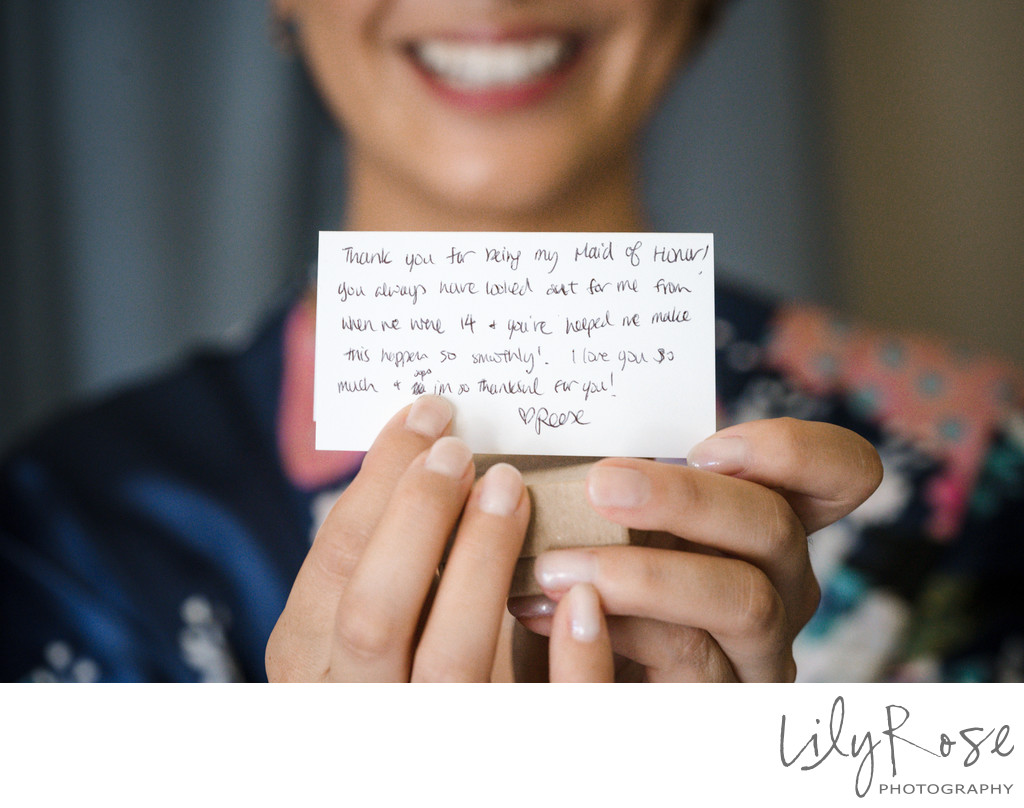 Thank you for being my Maid of Honor!
you always have looked out for me from
when we were 14 & you've helped me make
this happen so smoothly! I love you so
much & oops i'm so thankful for you!
♡Reese
LilyRose
PHOTOGRAPHY